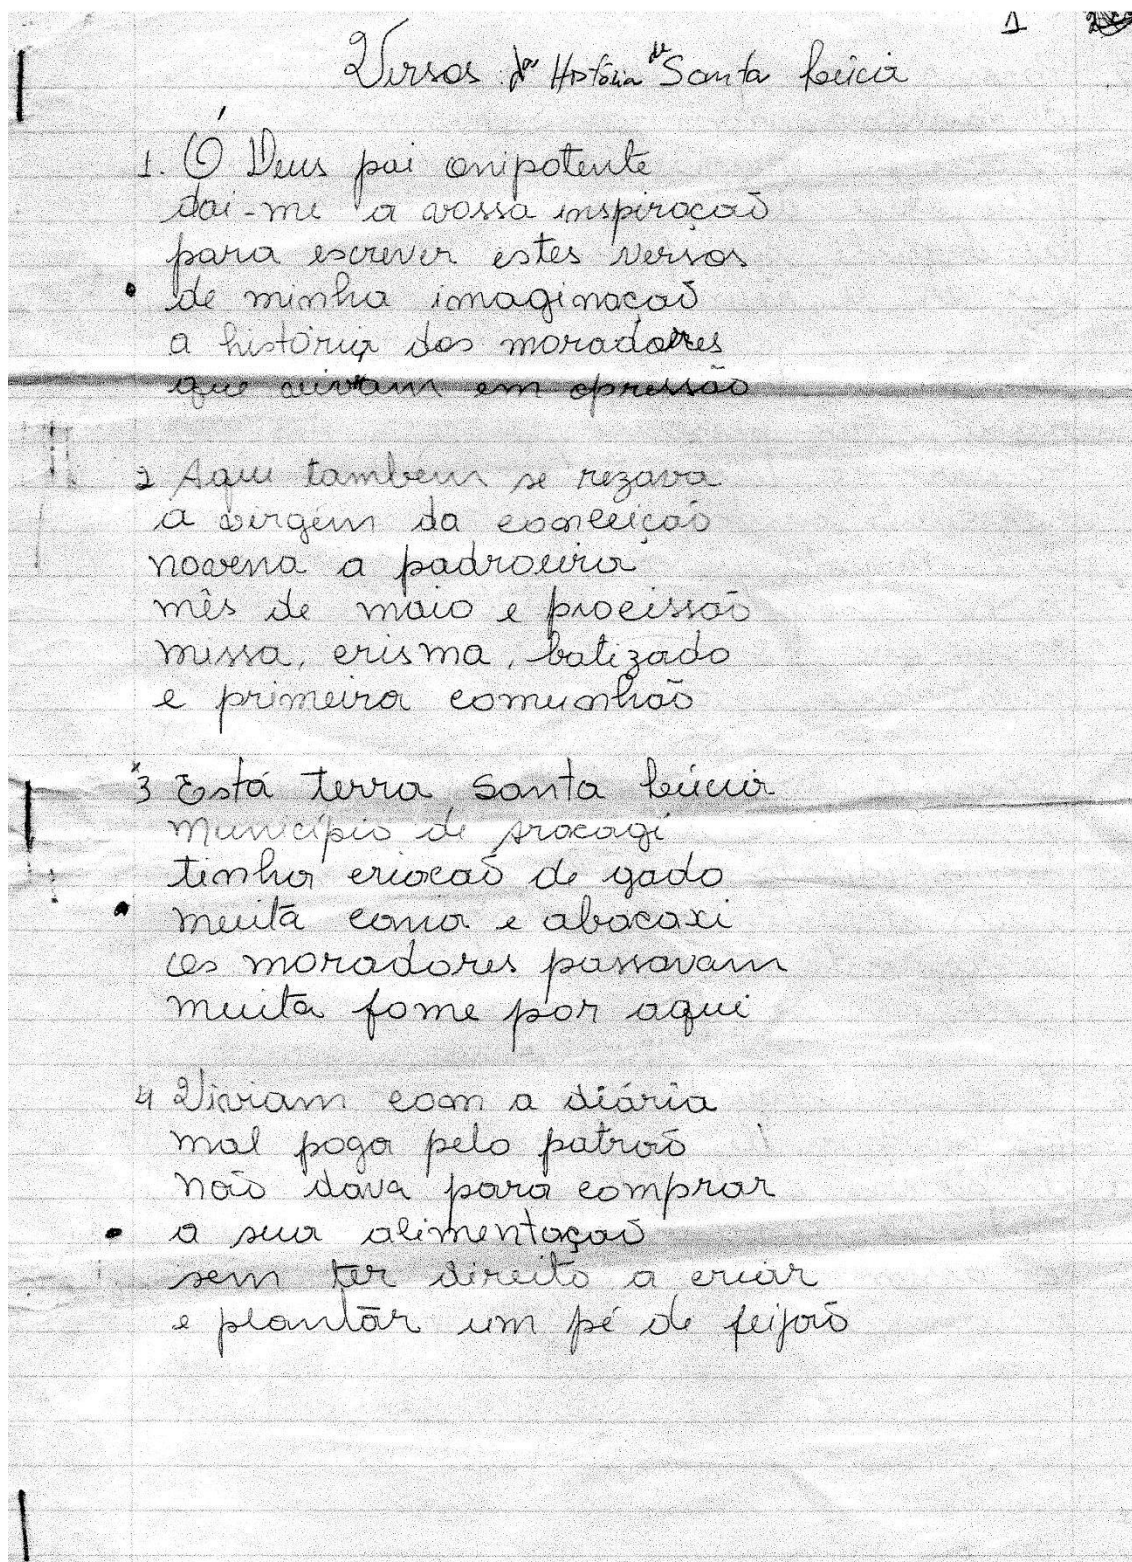 1
Versos da História de Santa Lúcia
1. Ó Deus pai onipotente
dai-me a vossa inspiração
para escrever estes versos
de minha imaginação
a história dos moradores
que viviam em opressão
2 Aqui também se rezava
a virgem da conceição
novena a padroeira
mês de maio e procissão
missa, crisma, batizado
e primeira comunhão
3 Está terra Santa Lúcia
Município de Araçagi
tinha criacão de gado
muita cana e abacaxi
os moradores passavam
muita fome por aqui
4 Viviam com a diária
mal paga pelo patrão
não dava para comprar
a sua alimentação
sem ter direito a criar
e plantar um pé de feijão